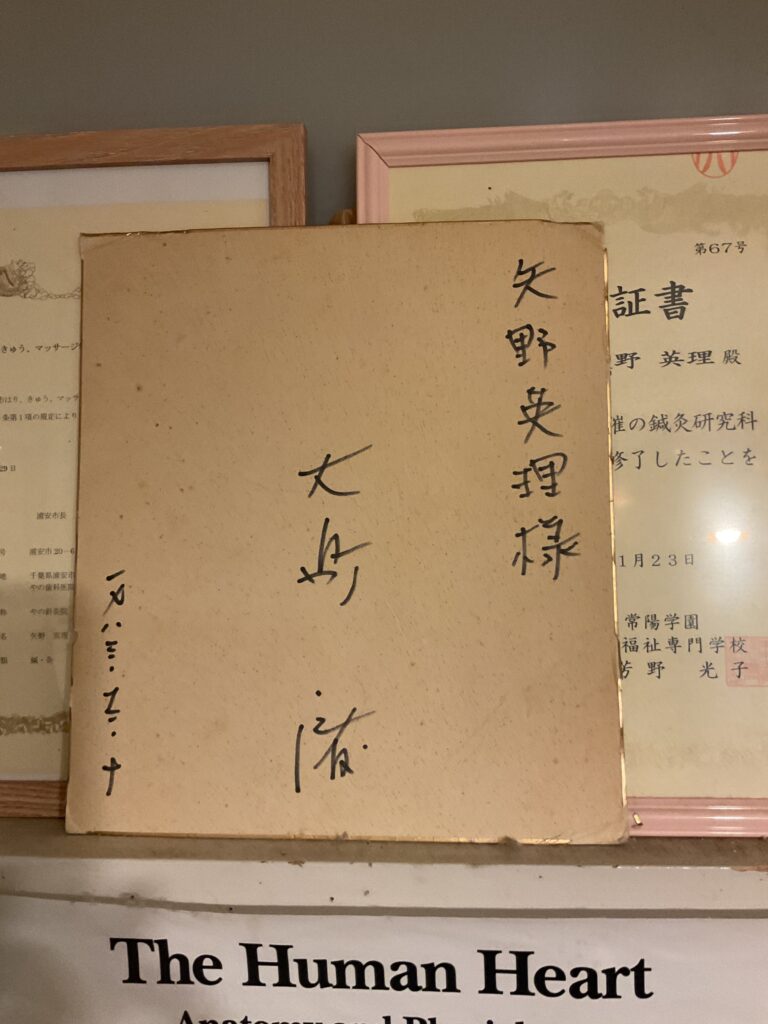 矢野英理様
大島 渚
一九八三・十二・十
きゅう、マッサージ
はり、きゅう、マッ
条第1項の規定により
29日
浦安市長
号 浦安市20-6
地 千葉県浦安市
やの歯科医院
称 やの鍼灸院
名 矢野
類 鍼・灸
第67号
証書
野 英理 殿
催の鍼灸研究科
修了したことを
1月23日
常陽学園
福祉専門学校
芳野 光子
The Human Heart
Anatomy and